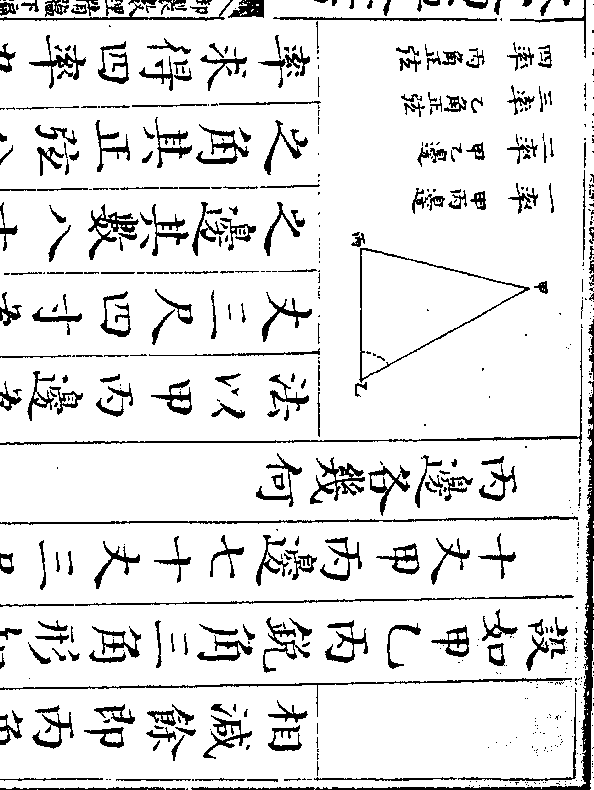 相減餘即丙角
設如甲乙丙鋭角三角形
十丈甲丙邊七十丈三尺
丙邊各幾何
甲
乙
丙
一率 甲丙邊
二率 甲乙邊
三率 乙角正弦
四率 丙角正弦
法以甲丙邊
丈三尺四寸
之邊其數八十
之角其正弦八
率求得四率